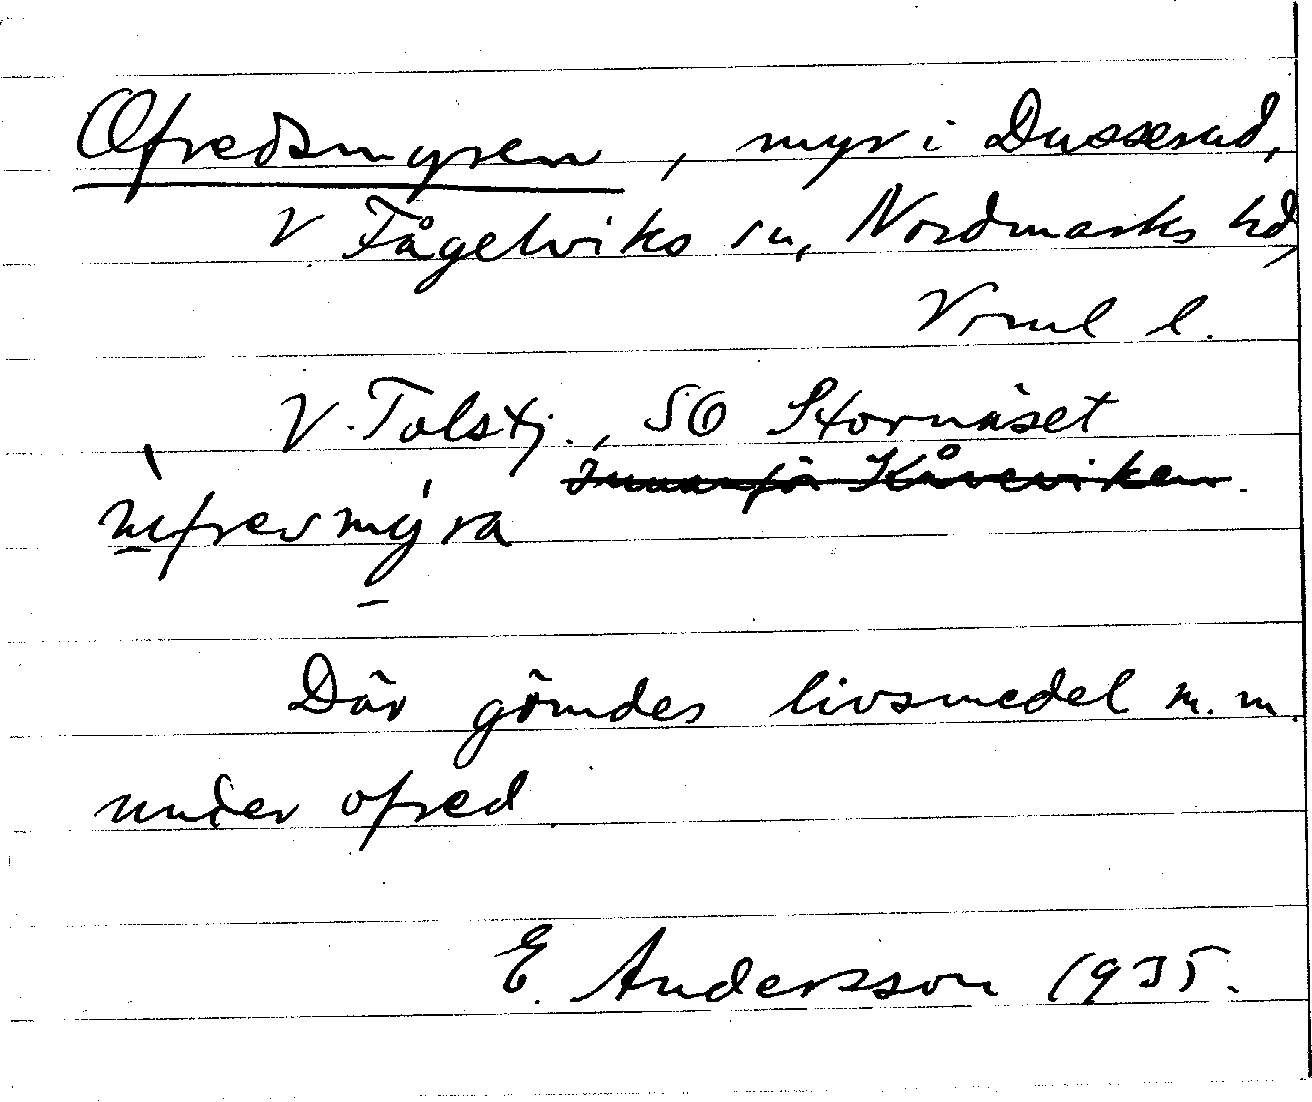 Ofredsmyren, myr i Dusserud,
V Fågelviks sn, Nordmarks hd,
Vrml l.
V. Tolstj., SO Stornäset
Innanför Kåreviken.
ùfresmýra
Där gömdes livsmedel m. m.
under ofred.
E. Andersson 1935.